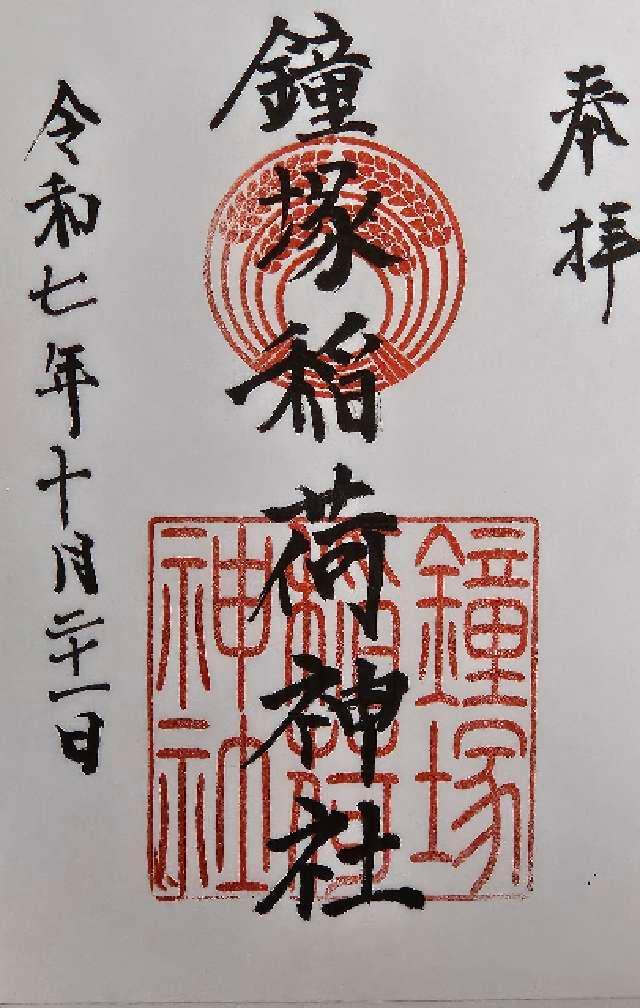 奉拝
鐘塚稲荷神社
鐘塚稲荷神社
令和七年十月二十一日